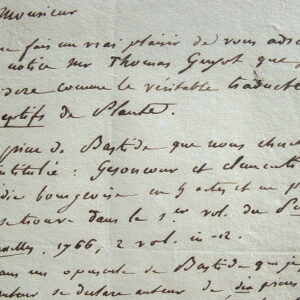 Monsieur
e fais un vrai plaisir de vous adre
notice sur Thomas Guyot que
dere comme le véritable traducte
aptifs de Plaute.
pièce de Bastide que nous cherch
ntitulée : Gésoncour et Clémenti
die bourgeoise en 5 actes et en p
se trouve dans le 1er vol. du
xelles, 1766, 2 vol. in-12.
ans un opuscule de Bastide
auteur se déclare auteur de six pièces